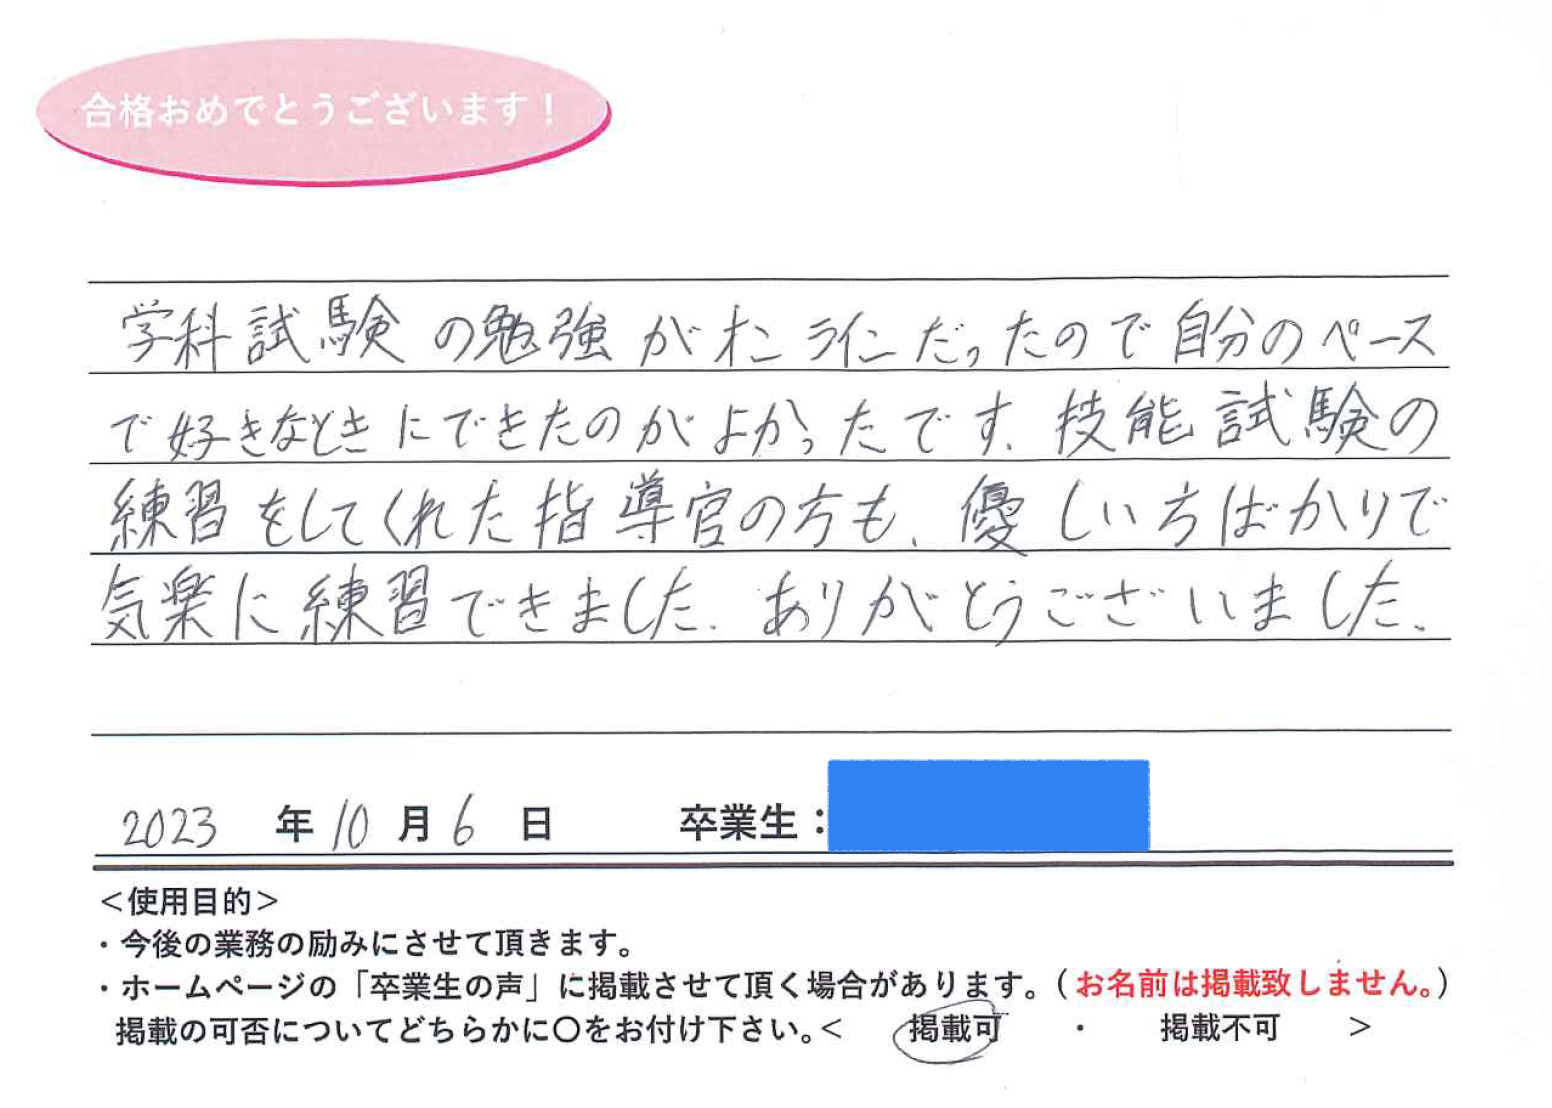 合格おめでとうございます！
学科試験の勉強がオンラインだったので自分のペース
で好きなときにできたのがよかったです。技能試験の
練習をしてくれた指導官の方も、優しい方ばかりで
気楽に練習できました。ありがとうございました。
2023 年 10 月 6 日 卒業生：
＜使用目的＞
・今後の業務の励みにさせて頂きます。
・ホームページの「卒業生の声」に掲載させて頂く場合があります。（お名前は掲載致しません。）
掲載の可否についてどちらかに〇をお付け下さい。＜ 掲載可 ・ 掲載不可 ＞